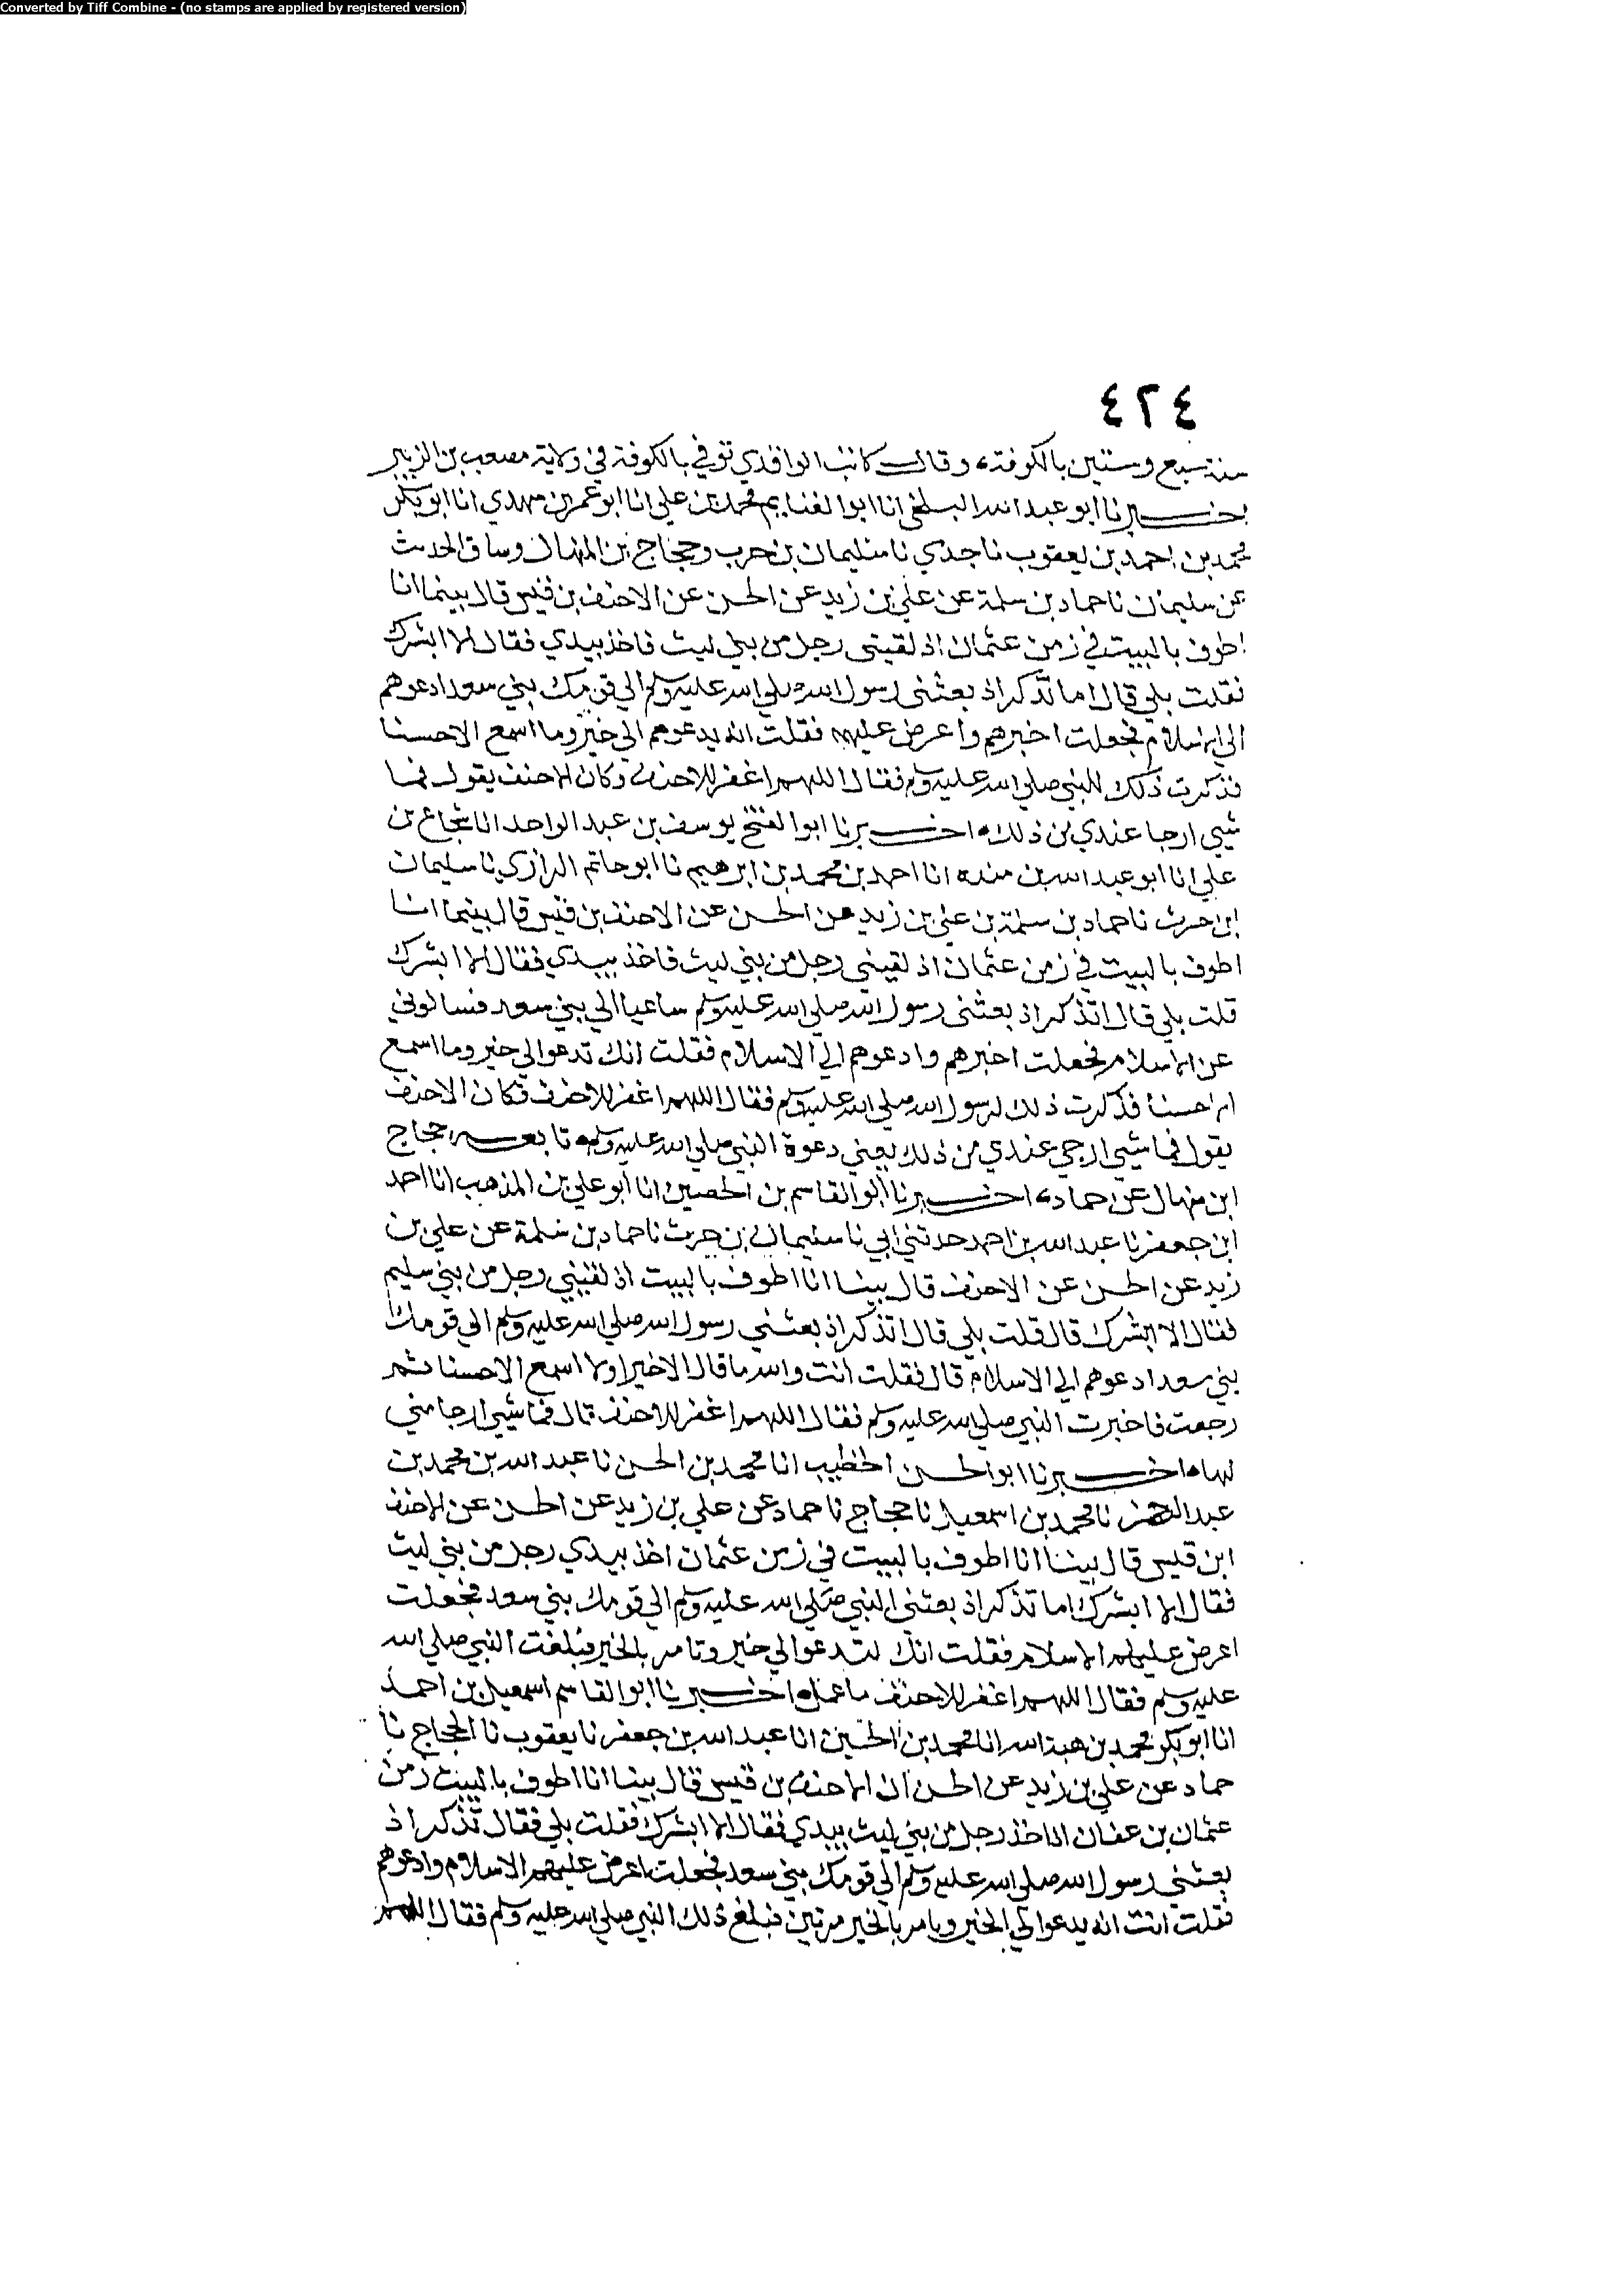 Converted by Tiff Combine - (no stamps are applied by registered version)
٤٢٤
سنة سبع وستين بالكوفة، وقال كاتب الواقدي توفي بالكوفة في ولاية مصعب بن الزبير
اخبرنا ابو عبد الله البلخي انا ابو الغنايم محمد بن علي انا ابو عمر بن مهدي انا ابو بكر
محمد بن احمد بن يعقوب نا جدي نا سليمان بن حرب وحجاج بن المنهال وساق الحديث
عن سليمان نا حماد بن سلمة عن علي بن زيد عن الحسن عن الاحنف بن قيس قال بينما انا
اطوف بالبيت في زمن عثمان اذ لقيني رجل من بني ليث فاخذ بيدي فقال الا ابشرك
فقلت بلي قال اما تذكر اذ بعثني رسول الله صلي الله عليه وسلم الي قومك بني سعد ادعوهم
الي الاسلام فجعلت اخبرهم واعرض عليهم فقلت انه يدعوهم الي خير وما اسمع الاحسنا
فذكرت ذلك للنبي صلي الله عليه وسلم فقال اللهم اغفر للاحنف وكان الاحنف يقول فما
شيي ارجا عندي من ذلك اخبرنا ابو الفتح يوسف بن عبد الواحد انا شجاع بن
علي انا ابو عبد الله بن منده انا احمد بن محمد بن ابرهيم نا ابو حاتم الرازي نا سليمان
ابن حرب نا حماد بن سلمة بن علي بن زيد عن الحسن عن الاحنف بن قيس قال بينما انا
اطوف بالبيت في زمن عثمان اذ لقيني رجل من بني ليث فاخذ بيدي فقال الا ابشرك
قلت بلي قال اتذكر اذ بعثني رسول الله صلي الله عليه وسلم ساعيا الي بني سعد فسالوني
عن الاسلام فجعلت اخبرهم وادعوهم الي الاسلام فقلت انك تدعوا لي خير وما اسمع
الاحسنا فذكرت ذلك لرسول الله صلي الله عليه وسلم فقال اللهم اغفر للاحنف فكان الاحنف
يقول فما شيي ارجي عندي من ذلك يعني دعوة النبي صلي الله عليه وسلم تابعه حجاج
ابن منهال عن حماد اخبرنا ابو القاسم بن الحصين انا ابو علي بن المذهب انا احمد
ابن جعفر نا عبد الله بن احمد حدثني ابي نا سليمان بن حرب نا حماد بن سلمة عن علي بن
زيد عن الحسن عن الاحنف قال بينا انا اطوف بالبيت اذ لقيني رجل من بني سليم
فقال الا ابشرك قال قلت بلي قال اتذكر اذ بعثني رسول الله صلي الله عليه وسلم الي قومك
بني سعد ادعوهم الي الاسلام قال فقلت انت والله ما قال الاخيرا ولا اسمع الاحسنا ثم
رجعت فاخبرت النبي صلي الله عليه وسلم فقال اللهم اغفر للاحنف قال فما شيي ارجا مني
لها اخبرنا ابو الحسن الخطيب انا محمد بن الحسن نا عبد الله بن محمد بن
عبد الرحمن نا محمد بن اسمعيل نا حجاج نا حماد عن علي بن زيد عن الحسن عن الاحنف
ابن قيس قال بينا انا اطوف بالبيت في زمن عثمان اخذ بيدي رجل من بني ليث
فقال الا ابشرك اما تذكر اذ بعثني النبي صلي الله عليه وسلم الي قومك بني سعد فجعلت
اعرض عليهم الاسلام فقلت انك لتدعوا لي خير وتامر بالخير فبلغت النبي صلي الله
عليه وسلم فقال اللهم اغفر للاحنف اخبرنا ابو القاسم اسمعيل بن احمد
انا ابو بكر محمد بن هبة الله انا محمد بن الحسين انا عبد الله بن جعفر نا يعقوب نا الحجاج نا
حماد عن علي بن زيد عن الحسن ان الاحنف بن قيس قال بينا انا اطوف بالبيت زمن
عثمان بن عفان اذ اخذ رجل من بني ليث بيدي فقال الا ابشرك فقلت بلي فقال تذكر اذ
بعثني رسول الله صلي الله عليه وسلم الي قومك بني سعد فجعلت اعرض عليهم الاسلام وادعوهم
فقلت انت انه يدعوا لي الخير ويامر بالخير مرتين فبلغ ذلك النبي صلي الله عليه وسلم فقال اللهم